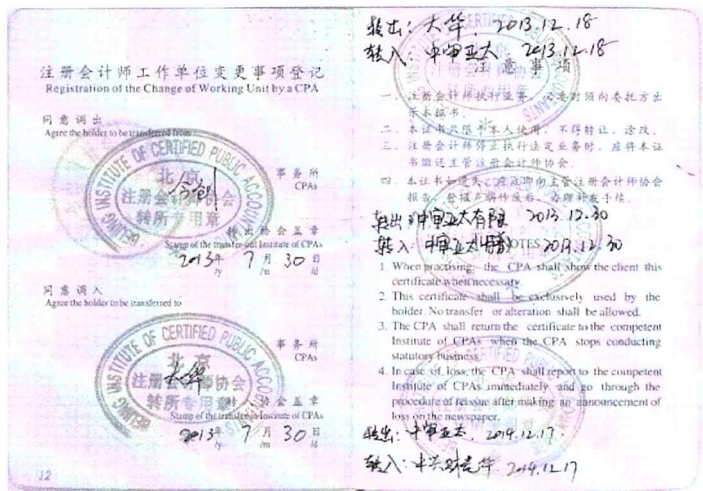 注册会计师工作单位变更事项登记
Registration of the Change of Working Unit by a CPA
同意调出
Agree the holder to be transferred from
BEIJING INSTITUTE OF CERTIFIED PUBLIC ACCOUNTANTS
北京
注册会计师协会
转所专用章
事务所
CPAs
转出协会盖章
Stamp of the transfer-out Institute of CPAs
2013年 7月 30日
/y /m /d
同意调入
Agree the holder to be transferred to
BEIJING INSTITUTE OF CERTIFIED PUBLIC ACCOUNTANTS
北京
大华
注册会计师协会
转所专用章
事务所
CPAs
转入协会盖章
Stamp of the transfer-in Institute of CPAs
2013年 7月 30日
/y /m /d
12
转出: 大华 2013.12.18
转入: 中审亚太 2013.12.18
注意事项
一、注册会计师执行业务,必要时须向委托方出
示本证书。
二、本证书只限于本人使用,不得转让、涂改。
三、注册会计师停止执行法定业务时,应将本证
书缴还主管注册会计师协会。
四、本证书如遗失,应立即向主管注册会计师协会
报告,登报声明作废后,办理补发手续。
转出: 中审亚太有限 2013.12.30
转入: 中审亚太 2013.12.30
NOTES
1. When practising, the CPA shall show the client this
certificate when necessary.
2. This certificate shall be exclusively used by the
holder. No transfer or alteration shall be allowed.
3. The CPA shall return the certificate to the competent
Institute of CPAs when the CPA stops conducting
statutory business.
4. In case of loss, the CPA shall report to the competent
Institute of CPAs immediately and go through the
procedure of reissue after making an announcement of
loss on the newspaper.
转出: 中审亚太 2014.12.17.
转入: 中兴财光华 2014.12.17